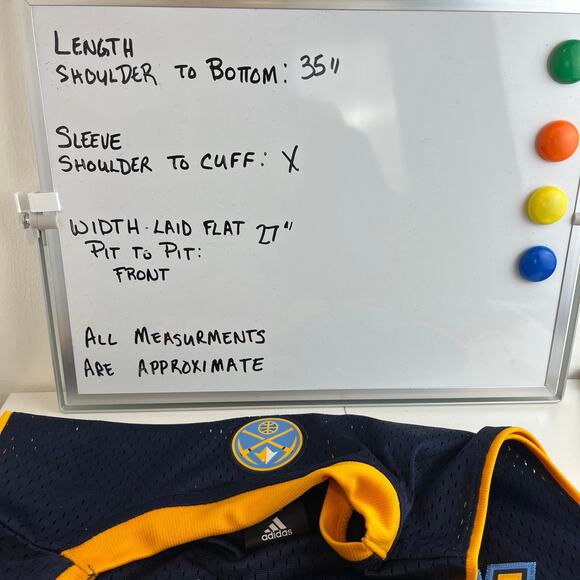 LENGTH
SHOULDER TO BOTTOM: 35"
SLEEVE
SHOULDER TO CUFF: X
WIDTH-LAID FLAT 27"
PIT TO PIT:
FRONT
ALL MEASURMENTS
ARE APPROXIMATE
adidas